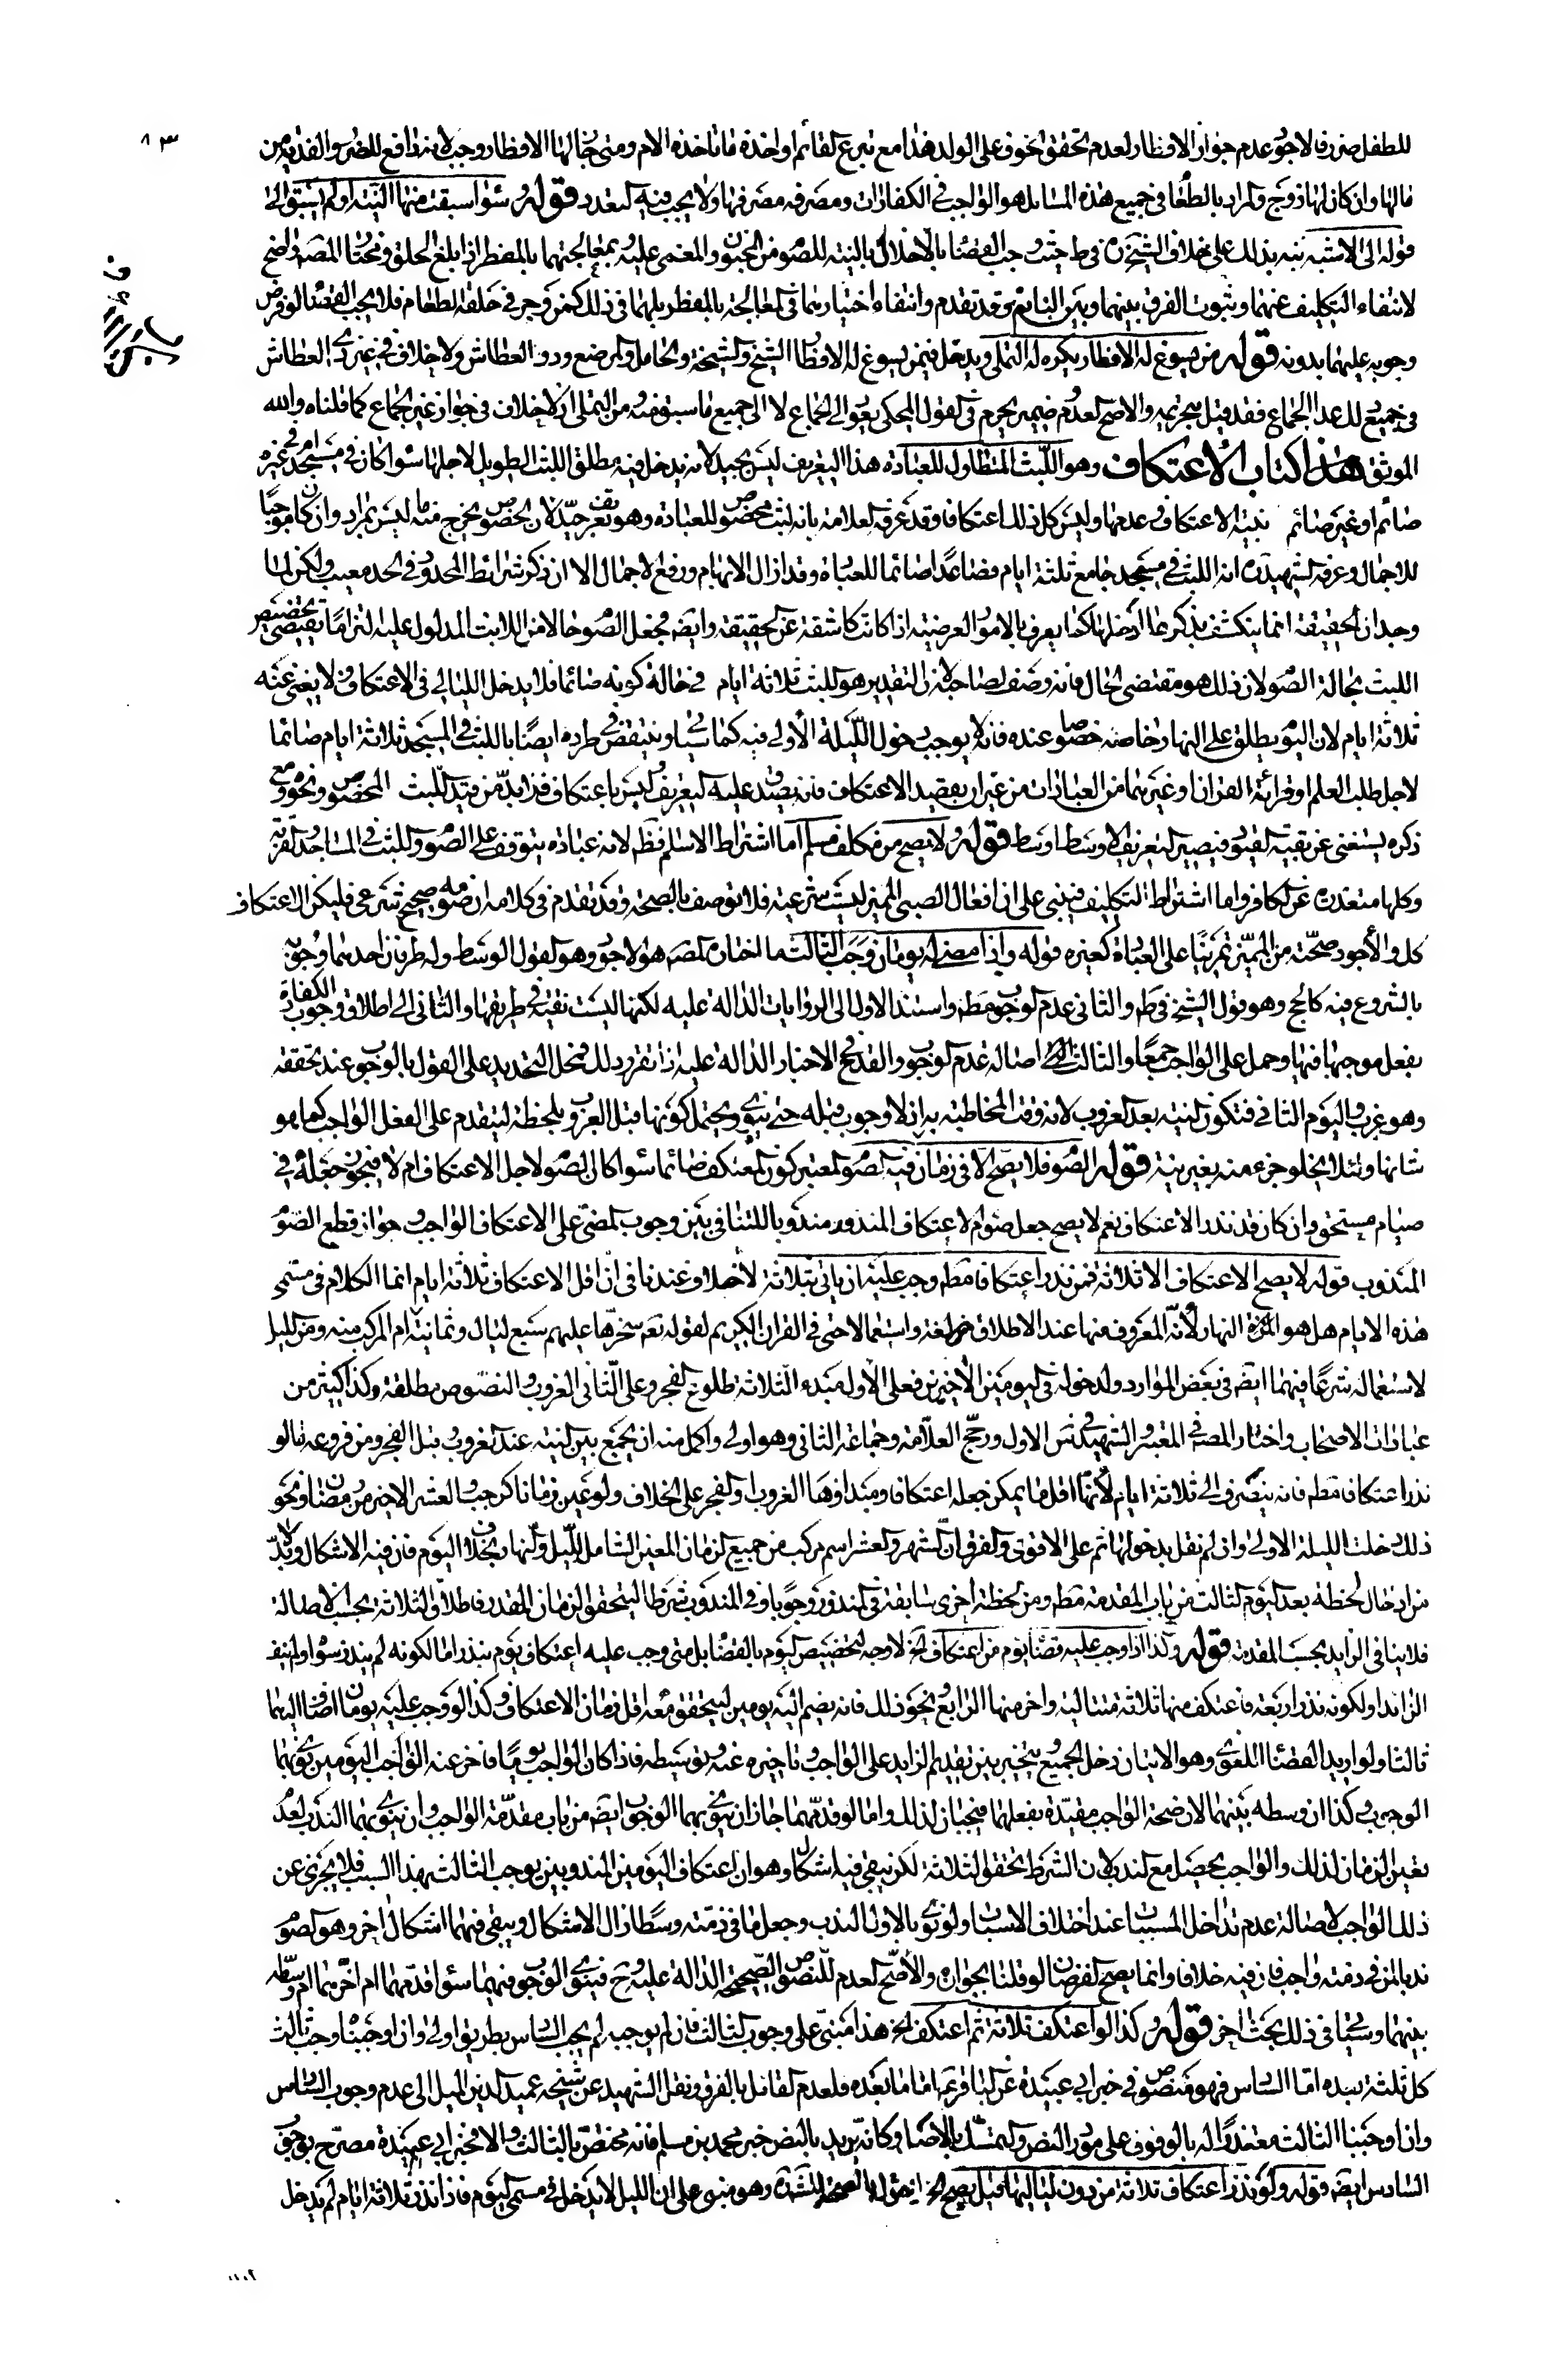 ٨٣
للطفل ضرر فالاجود عدم جواز الافطار لعدم تحقق الخوف على الولد هذا مع تبرع القائم او اخذه ما تاخذه الام ومتى خالها الافطار وجب لانه دافع للضرر والفدية من
مالها وان كان لها زوج والمراد بالطعام في جميع هذه المسائل هو الواجب في الكفارات ومصرفه مصرفها ولا يجب فيه التعدد قوله سواء سبقت منهما النية او لم تسبق الى
قوله الى الاشبه نبه بذلك على خلاف الشيخ ره في ط حيث وجب القضاء بالاخلال بالنية للصوم من المجنون والمغمى عليه بمعالجتهما بالمفطر اذا بلغ الحلق ومختار المصـ واضح
لانتفاء التكليف عنهما وثبوت الفرق بينهما وبين النائم وقد تقدم وانتفاء اختيارهما في المعالجة بالمفطر بل هما في ذلك كمن وجر في حلقه الطعام فلا يجب القضاء لو فرض
وجوبه عليهما بدونه قوله من يسوغ له الافطار يكره له التملي ويدخل فيمن يسوغ له الافطار الشيخ والشيخة والحامل والمرضع وذو العطاش ولا خلاف في غير ذي العطاش
في جميع ذلك عدا الجماع فقد قيل بتحريمه والاصح العدم وضمير يحرم في القول المحكي يعود الى الجماع لا الى جميع ما سبق منه من التملي اذ لا خلاف في جواز غير الجماع كما قلناه والله
الموفق هذا كتاب الاعتكاف وهو اللبث المتطاول للعبادة هذا التعريف ليس بجيد لانه يدخل فيه مطلق اللبث الطويل لاجلها سواء كان في مسجد ام في غيره
صائم او غير صائم بنية الاعتكاف وعدمها وليس كل ذلك اعتكافا وقد عرفه العلامة بانه لبث مخصوص للعبادة وهو تعريف جيد لان المخصوص يخرج منه ما ليس بمراد وان كان موجبا
للاجمال وعرفه الشهيد ره انه اللبث في مسجد جامع ثلثة ايام فصاعدا صائما للعبادة وقد ازال الابهام ورفع الاجمال الا ان ذكر شرائط المحدود في الحد معيب ولكن لما
وجدان الحقيقة انما ينكشف بذكرها ادخلها كما يعرف بالامور العرضية اذا كانت كاشفة عن الحقيقة وايضـ فجعل الصوم حالا من اللابث المدلول عليه التزاما يقتضي تخصيص
اللبث بحالة الصوم لان ذلك هو مقتضى الحال فانه وصف لصاحبه لان التقدير هو اللبث ثلاثة ايام في حالة كونه صائما فلا يدخل الليالي في الاعتكاف ولا يغني عنه
ثلاثة ايام لان اليوم يطلق على النهار خاصة خصوصا عنده فانه لا يوجب دخول الليلة الاولى فيه كما سياتي وينتقض في طرده ايضا باللبث في المسجد ثلاثة ايام صائما
لاجل طلب العلم او قرائة القران او غيرهما من العبادات من غير ان يقصد الاعتكاف فانه يصدق عليه التعريف وليس باعتكاف فلا بد من قيد اللبث المخصوص ونحوه ومع
ذكره يستغني عن بقية القيود فيصير التعريف الاوسط اوسط قوله ولا يصح من مكلف مسلم اما اشتراط الاسلام فظـ لانه عبادة يتوقف على الصوم واللبث في المساجد والقربة
وكلها متعذرة عن الكافر واما اشتراط التكليف فينبني على ان افعال الصبي المميز ليست شرعية فلا توصف بالصحة وقد تقدم في كلامه ان صومه صحيح شرعي فليكن الاعتكاف
كل والاجود صحته من المميز تمرينا على العبادة كغيره قوله واذا مضى له يومان وجب الثالث ما اختاره المصـ هو الاجود وهو القول الوسط وله طرفان احدهما وجوبه
بالشروع فيه كالحج وهو قول الشيخ في ط والثاني عدم الوجوب مطـ واستند الاول الى الروايات الدالة عليه لكنها ليست نقية في طريقها والثاني الى اطلاق وجوب الكفارة
بفعل موجبها فيها وحمل على الواجب جمعا والثالث الى اصالة عدم الوجوب والقدح في الاخبار الدالة عليه اذا تقرر ذلك فمحل التجديد على القول بالوجوب عند تحققه
وهو غروب اليوم الثاني فتكون النية بعد الغروب لانه وقت المخاطبة به اذ لا وجوب قبله حتى ينوي ويحتمل كونها قبل الغروب بلحظة ليتقدم على الفعل الواجب كما هو
شانها ولئلا يخلو جزء منه بغير نية قوله الصوم فلا يصح الا في زمان فيه الصوم المعتبر كون المعتكف صائما سواء كان الصوم لاجل الاعتكاف ام لا فيجوز جعله في
صيام مستحق وان كان قد نذر الاعتكاف نعم لا يصح جعل صوم الاعتكاف المنذور مندوبا للتنافي بين وجوب المضي على الاعتكاف الواجب وجواز قطع الصوم
المندوب قوله لا يصح الاعتكاف الا ثلاثة فمن نذر اعتكافا مطـ وجب عليه ان ياتي بثلاثة لا خلاف عندنا في ان اقل الاعتكاف ثلاثة ايام انما الكلام في مسمى
هذه الايام هل هو النهار لانه المعروف منها عند الاطلاق لغة واستعمالا حتى في القران الكريم لقوله تعـ سخرها عليهم سبع ليال وثمانية ايام ام المركب منه ومن الليل
لاستعماله شرعا فيهما ايضـ في بعض الموارد ولدخوله في اليومين الاخيرين فعلى الاول مبدء الثلاثة طلوع الفجر وعلى الثاني الغروب والنصوص مطلقة وكذا كثير من
عبارات الاصحاب واختار المصـ في المعتبر والشهيد في س الاول ورجح العلامة وجماعة الثاني وهو اولى واكمل منه ان يجمع بين النية عند الغروب وقبل الفجر ومن فروعه ما لو
نذر اعتكافا مطـ فانه ينصرف الى ثلاثة ايام لانها اقل ما يمكن جعله اعتكافا ومبداؤها الغروب او الفجر على الخلاف ولو عين زمانا كرجب والعشر الاخير من رمضان ونحو
ذلك دخلت الليلة الاولى وان لم نقل بدخولها ثم على الاقوى والفرق ان الشهر والعشر اسم مركب من جميع الزمان المعين الشامل لليل والنهار بخلاف اليوم فان فيه الاشكال ولا بد
من ادخال لحظة بعد اليوم الثالث من باب المقدمة مطـ ومن لحظة اخرى سابقة في المنذور وجوبا وفي المندوب شرطا ليتحقق الزمان المقدر فاطلاق الثلاثة بحسب الاصالة
فلا ينافي الزايد بحسب المقدمة قوله وكذا اذا وجب عليه قضاء يوم من اعتكاف الخ لا وجه لتخصيص اليوم بالقضاء بل متى وجب عليه اعتكاف يوم بنذر اما لكونه لم ينذر سواه ولم ينف
الزائد او لكونه نذر اربعة فاعتكف منها ثلاثة متتالية واخر منها الرابع ونحو ذلك فانه يضم اليه يومين ليتحقق معه اقل زمان الاعتكاف وكذا لو وجب عليه يومان اضاف اليهما
ثالثا ولو اريد القضاء اللغوي وهو الاتيان دخل الجميع ويتخير بين تقديم الزايد على الواجب وتاخيره عنه وتوسيطه فاذا كان الواجب يوما فاخر عنه الواجب اليومين نوى بهما
الوجوب وكذا ان وسطه بينهما لان صحة الواجب مقيدة بفعلهما فيجبان لذلك واما لو قدمهما جاز ان ينوي بهما الوجوب ايضـ من باب مقدمة الواجب وان ينوي بهما الندب لعدم
تعين الزمان لذلك والواجب يحصل مع الندب لان الشرط تحقق الثلاثة لكن يبقى فيه اشكال وهو ان اعتكاف اليومين المندوبين يوجب الثالث بهذا السبب فلا يجزي عن
ذلك الواجب لاصالة عدم تداخل المسببات عند اختلاف الاسباب ولو نوى بالاول الندب وجعل ما في ذمته وسطا زال الاشكال ويبقى فيهما اشكال اخر وهو الصوم
ندبا لمن في ذمته واجب فان فيه خلافا وانما يصح الفرضان لو قلنا بجوازه والاصح العدم للنصوص الصحيحة الدالة عليه وح فينوي الوجوب فيهما سواء قدمهما ام اخرهما ام وسطه
بينهما وسياتي في ذلك بحث اخر قوله وكذا لو اعتكف ثلاثة ثم اعتكف الخ هذا مبني على وجوب الثالث فان لم يوجبه لم يجب السادس بطريق اولى وان اوجبناه وجب ثالث
كل ثلثة بعده اما السادس فهو منصوص في خبر ابي عبيدة عن الباقر عـ واما ما بعده فلعدم القائل بالفرق ونقل الشهيد عن شيخه عميد الدين الميل الى عدم وجوب السادس
وان اوجبنا الثالث معتذرا له بالوقوف على مورد النص والتمسك بالاصل وكانه يريد بالنص خبر محمد بن مسلم فانه مختص بالثالث والا فخبر ابي عبيدة مصرح بوجوب
السادس ايضـ قوله ولو نذر اعتكاف ثلاثة من دون لياليها قيل يصح الخ القول بالصحة للشيخ ره وهو مبني على ان الليل لا يدخل في مسمى اليوم فاذا نذر ثلاثة ايام لم يدخل